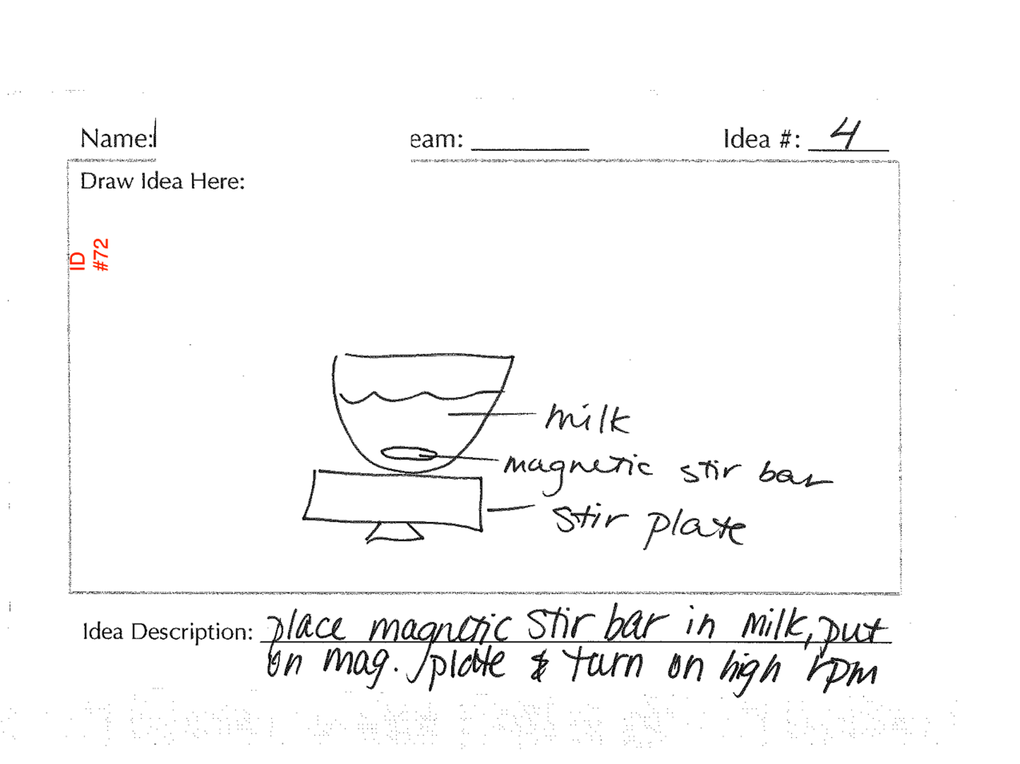 Name: eam: Idea #: 4
Draw Idea Here:
ID
#72
milk
magnetic stir bar
stir plate
Idea Description: place magnetic stir bar in milk, put
on mag. plate & turn on high rpm